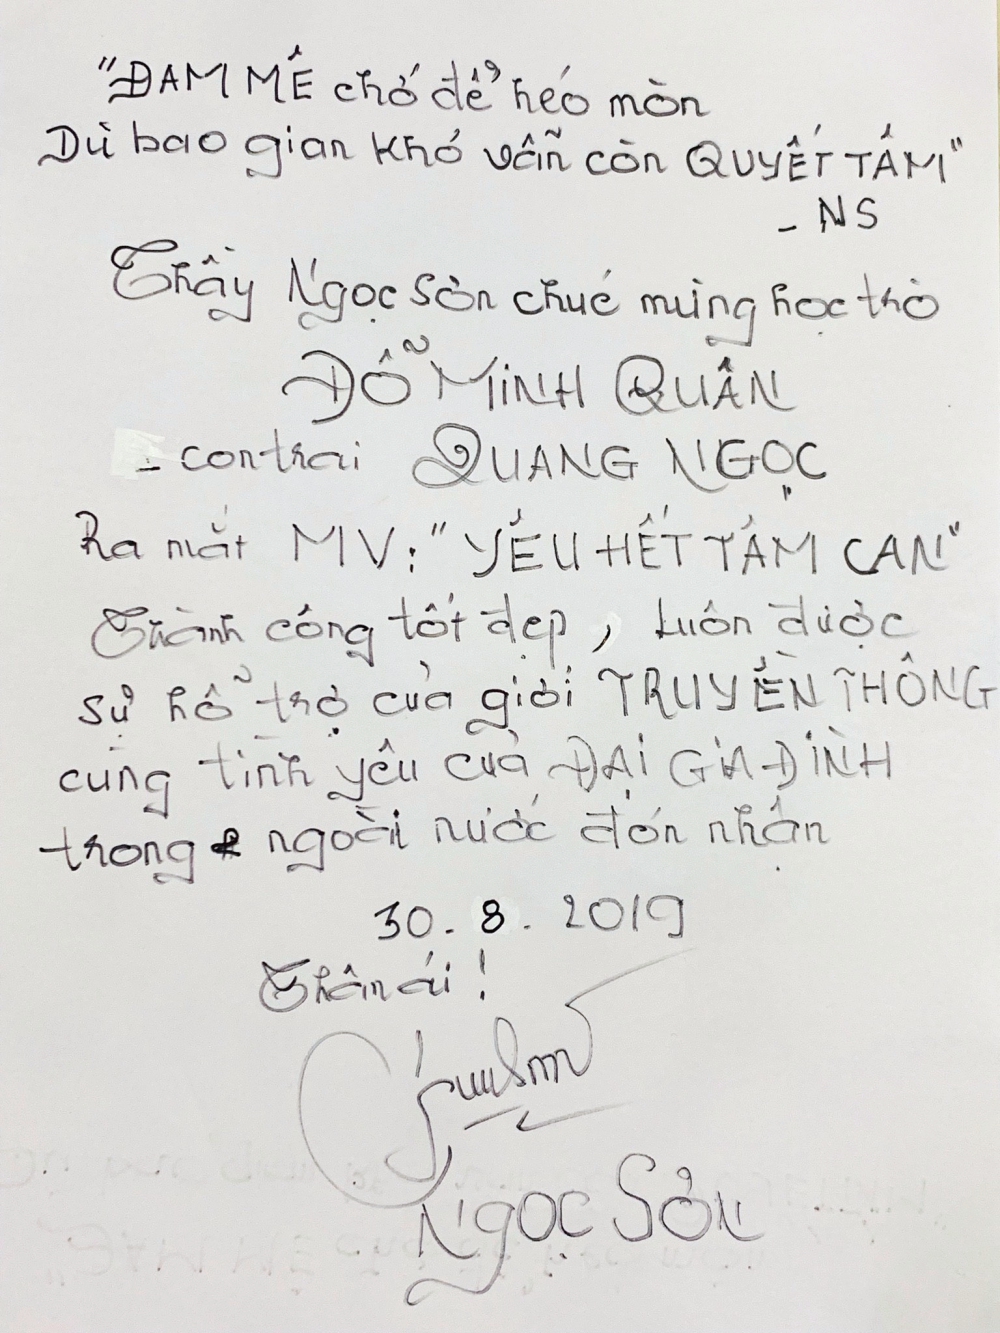 "ĐAM MÊ chớ để héo mòn
Dù bao gian khó vẫn còn QUYẾT TÂM"
- NS
Thầy Ngọc Sơn chúc mừng học trò
ĐỖ MINH QUÂN
- con trai QUANG NGỌC
Ra mắt MV: "YÊU HẾT TÂM CAN"
Thành công tốt đẹp, luôn được
sự hỗ trợ của giới TRUYỀN THÔNG
cùng tình yêu của ĐẠI GIA ĐÌNH
trong & ngoài nước đón nhận
30. 8. 2019
Thân ái!
NGỌC SƠN